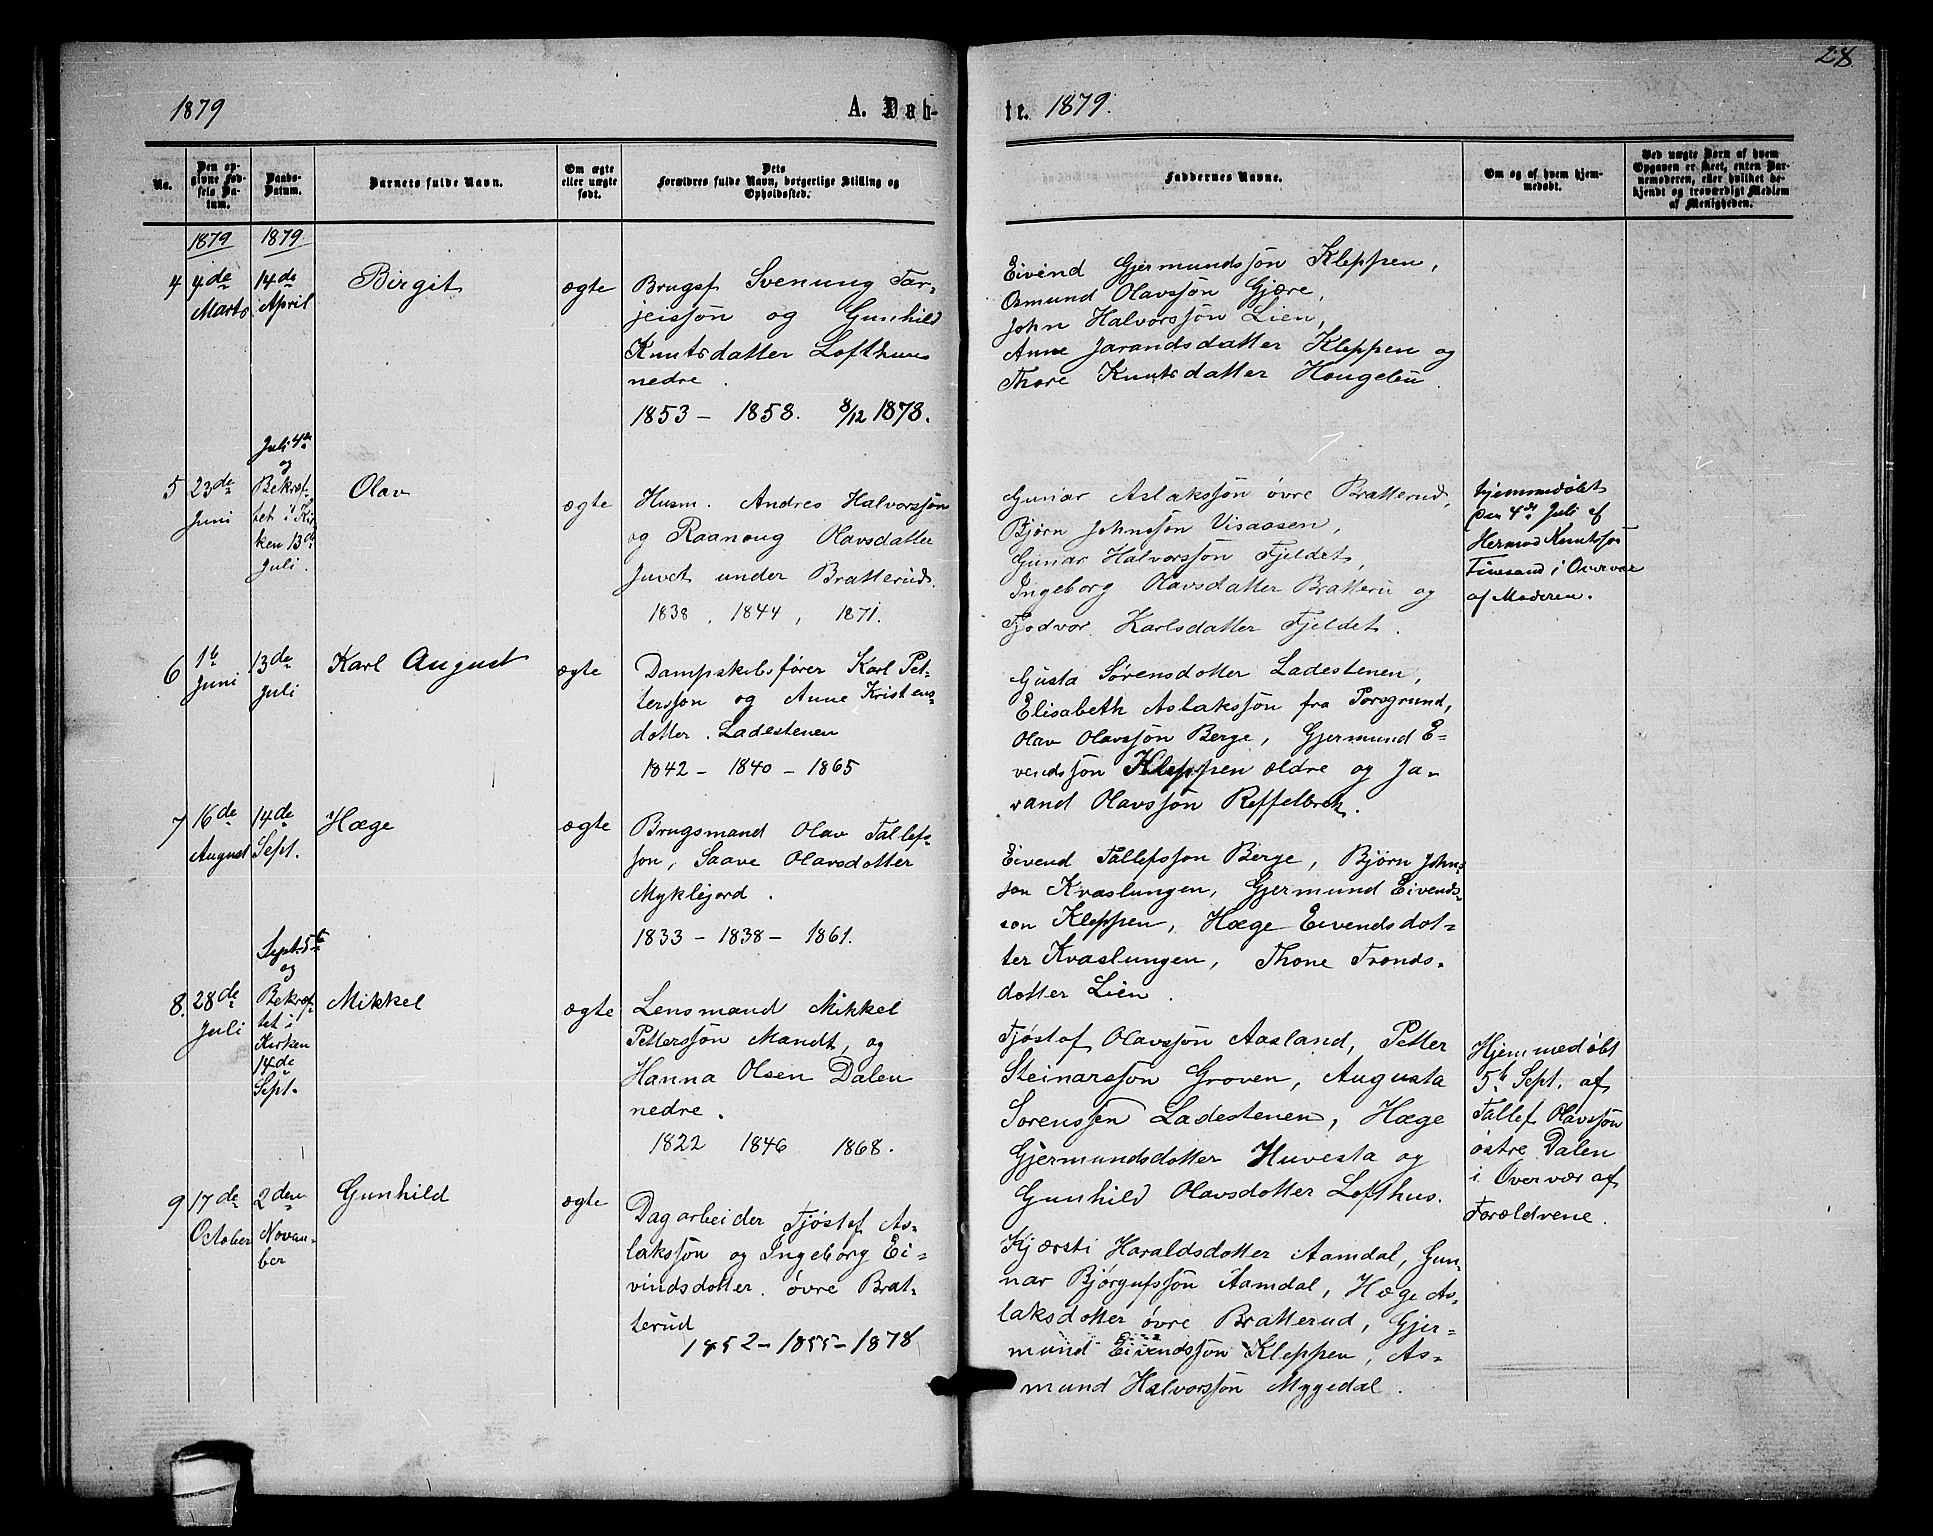 28
1879
A. Døb-
te. 1879.
No.
Den op-
givne Fød-
sels Da-
tum.
Daabs-
Datum.
Barnets fulde Navn.
Om ægte
eller uægte
født.
Dets
Forældres fulde Navn, borgerlige Stilling og
Opholdssted.
Faddernes Navne.
Om og af hvem hjem-
medøbt.
Ved uægte Børn af hvem
Opgaven er skeet, enten Bar-
nemoderen, eller hvilket be-
kjendt og troværdigt Medlem
af Menigheden.
1879
1879
4
4de
Marts
14de
April
Birgit
ægte
Brugsf Svenung Tar-
jeissøn og Gunhild
Knutsdatter Lofthuus
nedre.
1853 - 1858. 8/12 1878.
Eivind Gjermundssøn Kleppen,
Osmund Olavssøn Gjøre,
John Halvorssøn Lien,
Anne Jarandsdatter Kleppen og
Thore Knutsdatter Hougebu.
5
23de
Juni
Juli 4de
og
Bekræf-
tet i Kir
ken 13de
Juli.
Olav
ægte
Husm. Andres Halvorssøn
og Raanoug Olavsdatter
Juvet under Bratterud.
1838, 1844, 1871.
Gunar Aslakssøn øvre Bratterud,
Bjørn Johnssøn Visaasen,
Gunar Halvorssøn Fjeldet,
Ingeborg Olavsdatter Bratteru og
Tjodvor Karlsdatter Fjeldet.
hjemmedøbt
den 4de Juli af
Hermod Knutssøn
Finsand i Overvær
af Moderen.
6
1te
Juni
13de
Juli
Karl August
ægte
Dampskibsfører Karl Pet-
terssøn og Anne Kristens-
dotter. Ladestenen
1842 - 1840 - 1865
Gusta Sørensdotter Ladestenen,
Elisabeth Aslakssøn fra Porsgrund,
Olav Olavssøn Berge, Gjermund E-
vendssøn Kleppen ældre og Ja-
rand Olavssøn Reffelbrek.
7
16de
August
14de
Sept.
Hæge
ægte
Brugsmand Olav Tallefs-
søn, Saave Olavsdotter
Myklejord.
1833 - 1838 - 1861.
Eivend Tallefssøn Berge, Bjørn John-
søn Kvaslungen, Gjermund Eivends-
søn Kleppen, Hæge Eevendsdot-
ter Kvaslungen, Thone Tronds-
dotter Lien.
8.
28de
Juli
Sept. 5te
og
Bekræf-
tet i
Kirken
14de
Sept.
Mikkel
ægte
Lensmand Mikkel
Petterssøn Mandt, og
Hanna Olsen Dalen
nedre.
1822 1846 1868.
Tjøstof Olavssøn Aasland, Petter
Steinarssøn Groven, Augusta
Sørenssen Ladestenen, Hæge
Gjermundsdotter Huvesta og
Gunhild Olavsdotter Lofthus.
Hjemmedøbt
5te Sept. af
Tallef Olavssøn
østre Dalen
i Overvær af
Forældrene.
9
17de
October
2den
Novem-
ber
Gunhild
ægte
Dagarbeider Tjøstef As-
lakssøn og Ingeborg Ei-
vindsdotter. øvre Brat-
terud
1852 - 1855 - 1878
Kjærsti Haraldsdotter Aamdal, Gun-
nar Bjørgufssøn Aamdal, Hæge As-
laksdotter øvre Bratterud, Gjer-
mund Eivendssøn Kleppen, As-
mund Halvorssøn Myggedal.